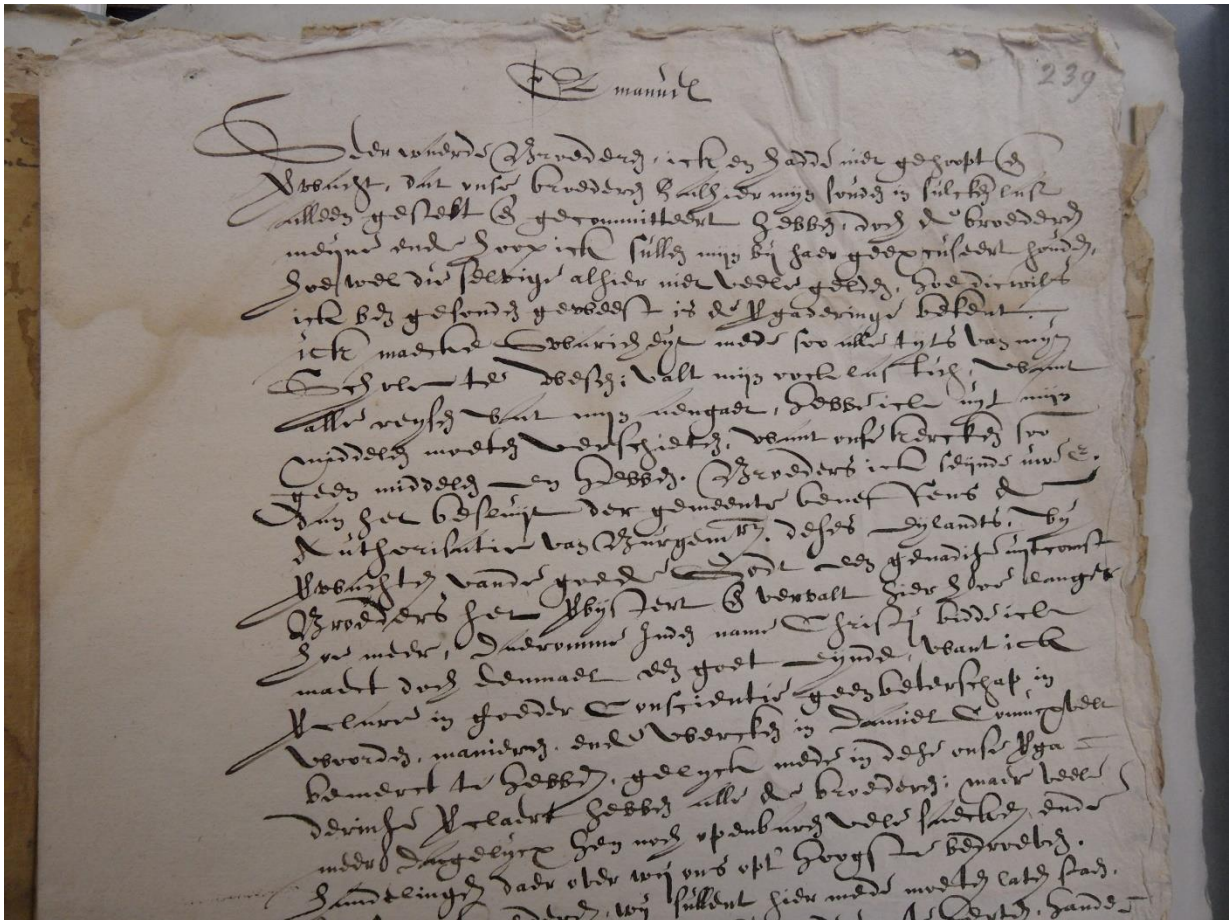 Emanuel
239
Seer weerde Broederen, ick en hadde niet gehoopt en
verwacht, dat onse broederen alhier mijn souden in sulcken last
alleen gestelt en gecommitteert hebben, doch de broederen
meijne ende hoop ick sullen mijn bij haer geexcuseert houden,
hoe wel die selvige alhier niet veele gelden, hoe dicwils
ick ben gesonden geweest is de vergaderinge bekent
ick maecke swaricheyt mede soo alle tyts van mijn
Schole te wesen; valt mijn oock lastich, want
alle reysen wat mijn aengaet, hebbe ick uyt mijn
middelen moeten verschieten, want onse kercken soo
geen middelen en hebben. Broeders ick seynde uwe E.
dan het besluijt der gemeente beneffens de
Authorisatie van Burgemrs. deses eylandts, by
verwachten vande goede Godt een genadige uytcomst
Broeders het verbystert en vervalt hier hoe langer
hoe meer, daeromme inden name Christi bidde ick
maect doch eenmael een goet eynde, want ick
verclare in goeder Conscientie geen beterschap in
woorden, manieren, ende wercken in Daniel
bemerct te hebben, gelyck mede in dese onse verga
deringe verclaert hebben alle de broederen; maer veele
meer dagelycx hen noch openbaren vele saecken, ende
handelingen daer over wij ons opt hoogste bedroeven.
wij sullent hier mede moeten laten staen,